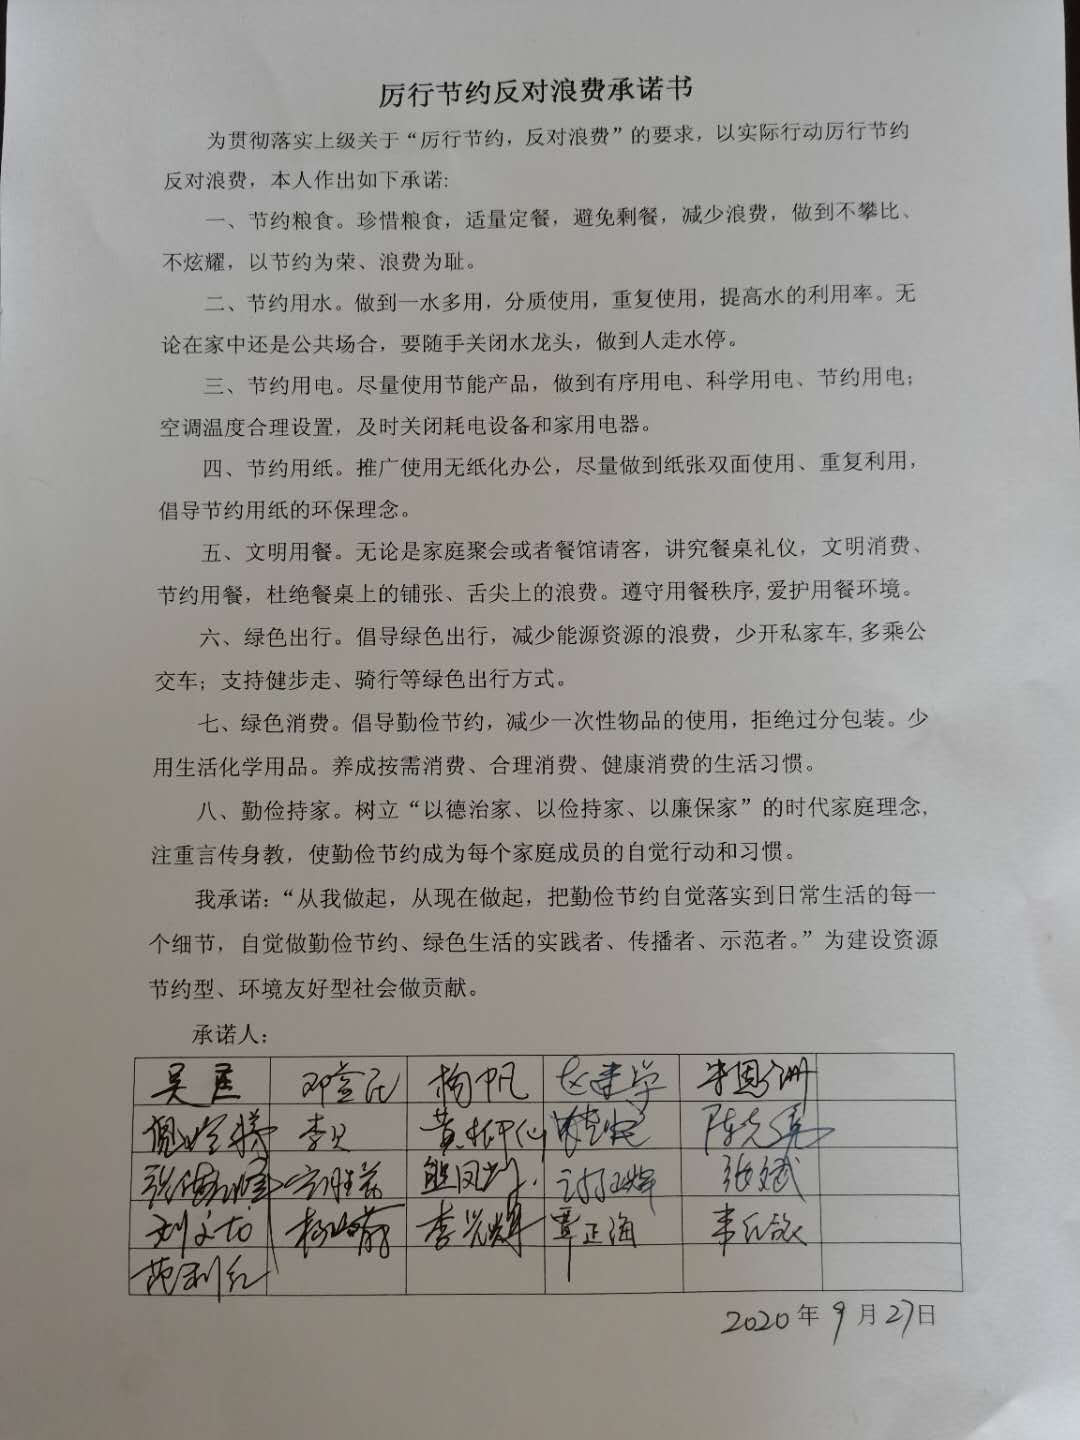 厉行节约反对浪费承诺书
为贯彻落实上级关于“厉行节约，反对浪费”的要求，以实际行动厉行节约
反对浪费，本人作出如下承诺:
一、节约粮食。珍惜粮食，适量定餐，避免剩餐，减少浪费，做到不攀比、
不炫耀，以节约为荣、浪费为耻。
二、节约用水。做到一水多用，分质使用，重复使用，提高水的利用率。无
论在家中还是公共场合，要随手关闭水龙头，做到人走水停。
三、节约用电。尽量使用节能产品，做到有序用电、科学用电、节约用电；
空调温度合理设置，及时关闭耗电设备和家用电器。
四、节约用纸。推广使用无纸化办公，尽量做到纸张双面使用、重复利用，
倡导节约用纸的环保理念。
五、文明用餐。无论是家庭聚会或者餐馆请客，讲究餐桌礼仪，文明消费、
节约用餐，杜绝餐桌上的铺张、舌尖上的浪费。遵守用餐秩序,爱护用餐环境。
六、绿色出行。倡导绿色出行，减少能源资源的浪费，少开私家车,多乘公
交车；支持健步走、骑行等绿色出行方式。
七、绿色消费。倡导勤俭节约，减少一次性物品的使用，拒绝过分包装。少
用生活化学用品。养成按需消费、合理消费、健康消费的生活习惯。
八、勤俭持家。树立“以德治家、以俭持家、以廉保家”的时代家庭理念,
注重言传身教，使勤俭节约成为每个家庭成员的自觉行动和习惯。
我承诺：“从我做起，从现在做起，把勤俭节约自觉落实到日常生活的每一
个细节，自觉做勤俭节约、绿色生活的实践者、传播者、示范者。”为建设资源
节约型、环境友好型社会做贡献。
承诺人：
杨帆 赵建学 朱恩洲
张斌
李兴辉 覃正海
范利红
2020年9月27日